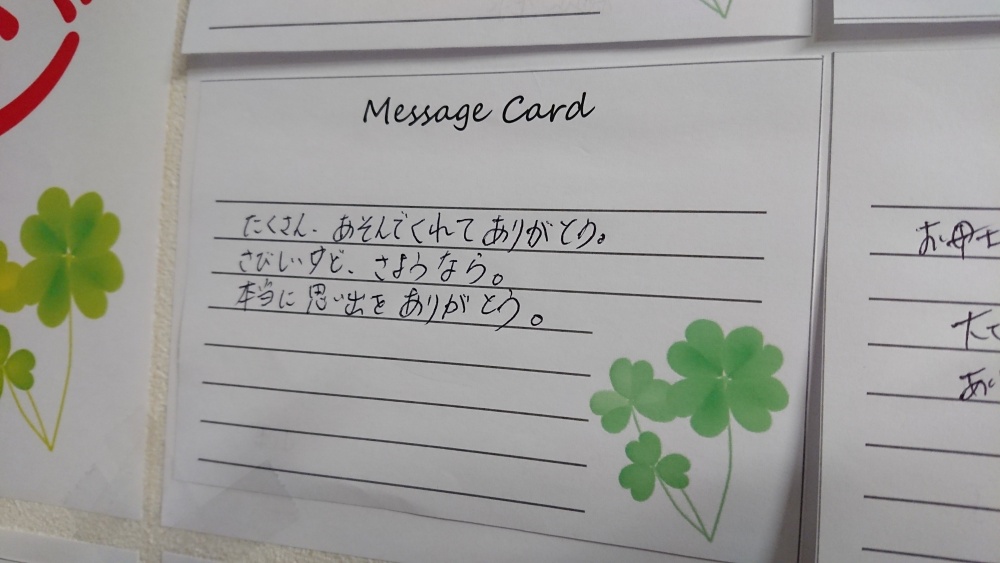 Message Card
たくさん、あそんでくれてありがとう。
さびしいけど、さようなら。
本当に思い出をありがとう。
お母士
大て
あい